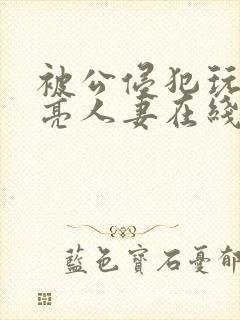 被公侵犯玩
亮人妻在线
藍色寶石憂郁